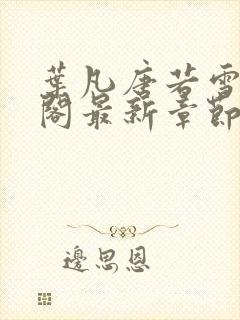 葉凡唐若雪
閣最新章節
邊思恩